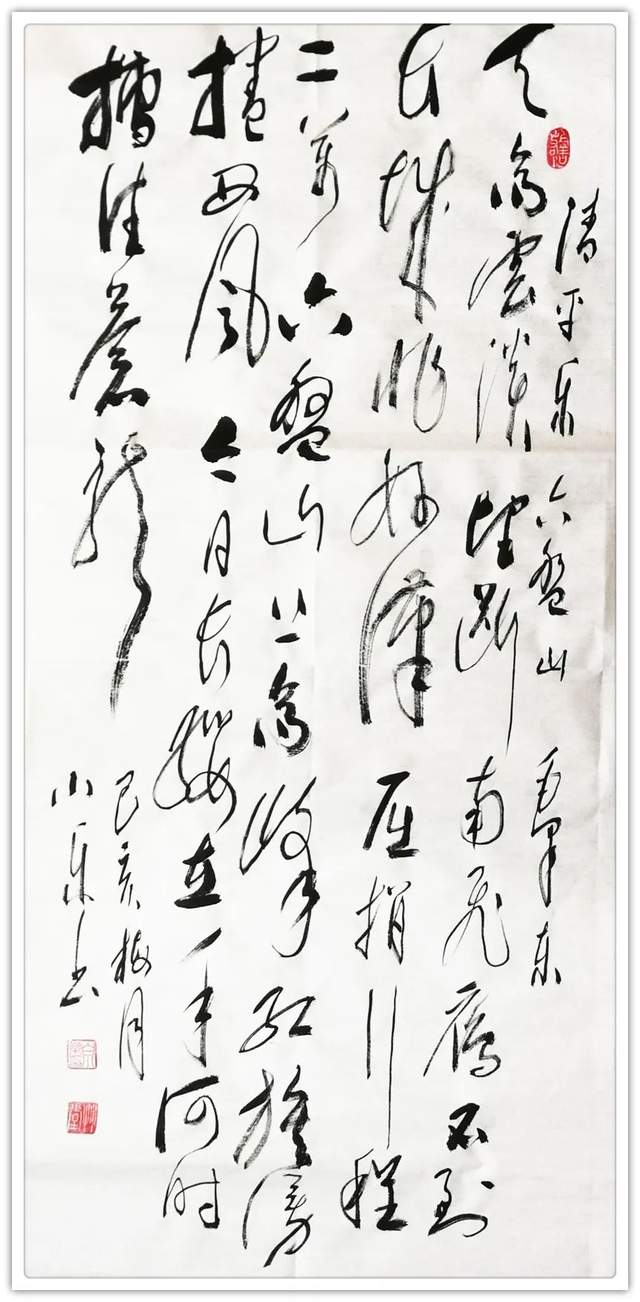 清平乐 六盘山 毛泽东
天高雲淡望断南飞雁不到
长城非好漢屈指行程
二萬六盘山上高峰红旗漫
捲西风今日长缨在手何时
缚住蒼龙
己亥梅月
小乐书